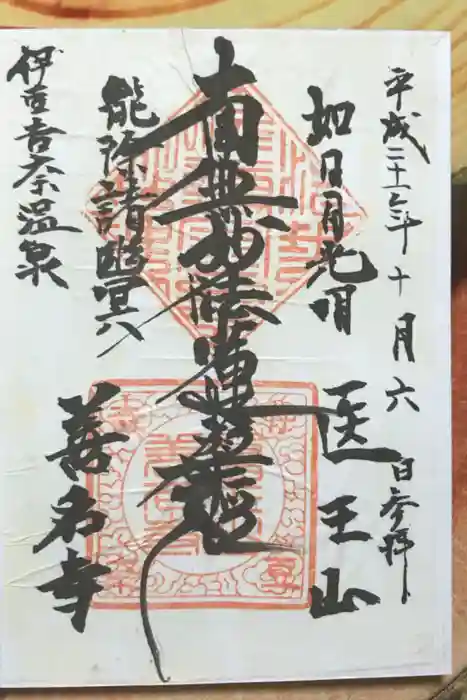 平成二十三年十月六日参拝
如日月光明
医王山
南無妙法蓮華経
能除諸幽冥
善名寺
伊豆古奈温泉